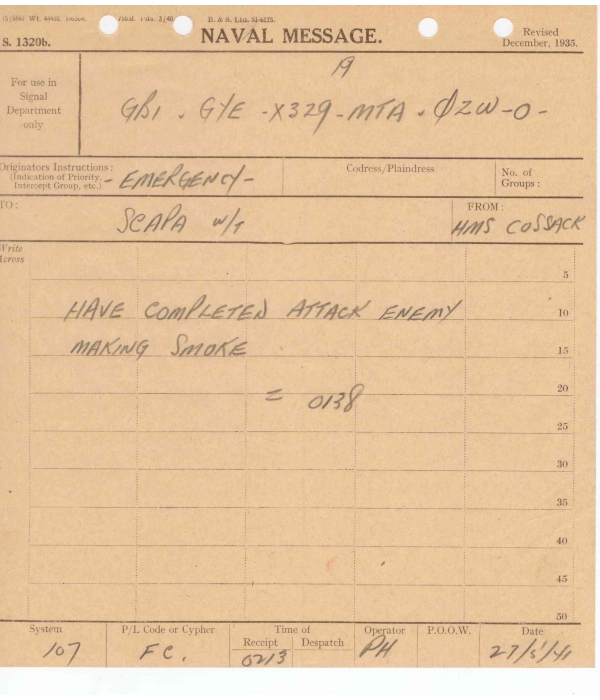 B. & S. Ltd.
S. 1320b.
NAVAL MESSAGE.
Revised
December, 1935.
For use in
Signal
Department
only
19
GBI . GYE - X329 - MTA . ØZW - O -
Originators Instructions:
(Indication of Priority,
Intercept Group, etc.)
- EMERGENCY -
Codress/Plaindress
No. of
Groups :
TO:
SCAPA W/T
FROM:
HMS COSSACK
Write
Across
5
HAVE COMPLETED ATTACK ENEMY
10
MAKING SMOKE
15
= 0138
20
25
30
35
40
45
50
System
P/L Code or Cypher
Time of
Receipt
Despatch
Operator
P.O.O.W.
Date
107
FC.
0213
PH
27/5/41